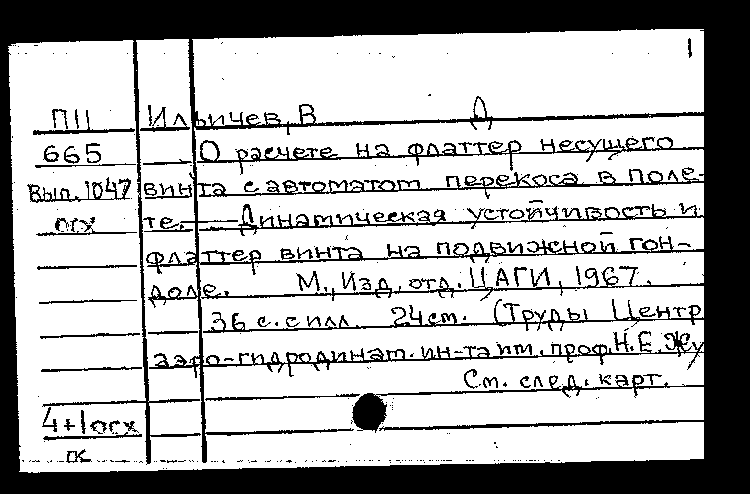 1
П11 Ильичев, В Д
665 О расчете на флаттер несущего
Вып. 1047 винта с автоматом перекоса в поле-
осх те. — Динамическая устойчивость и
флаттер винта на подвижной гон-
доле. М., Изд. отд. ЦАГИ, 1967.
36 с. с илл. 24 см. (Труды Центр
аэро-гидродинат. ин-та им. проф. Н. Е. Жу
См. след. карт.
4+1 осх
гк